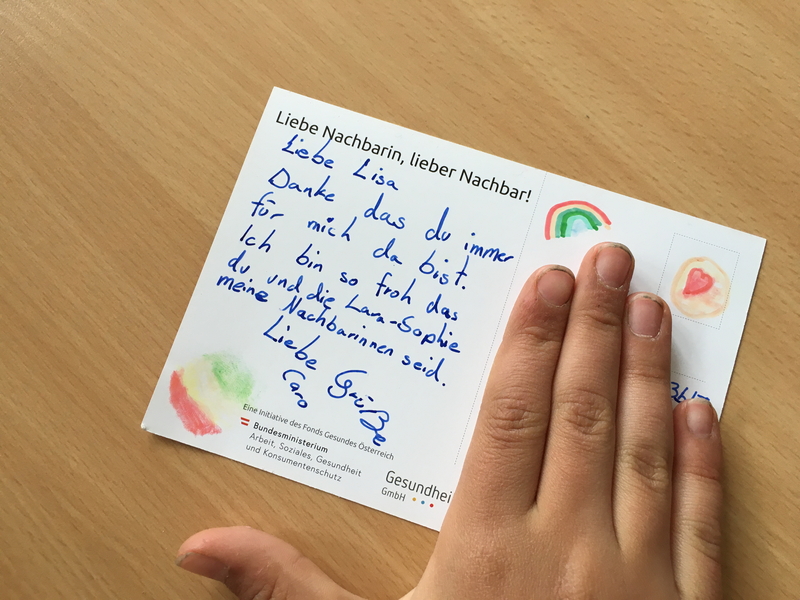 Liebe Nachbarin, lieber Nachbar!
Liebe Lisa
Danke das du immer
für mich da bist.
Ich bin so froh das
du und die Lara-Sophie
meine Nachbarinnen seid.
Liebe Grüße
Caro
Eine Initiative des Fonds Gesundes Österreich
Bundesministerium
Arbeit, Soziales, Gesundheit
und Konsumentenschutz
Gesundhei
GmbH